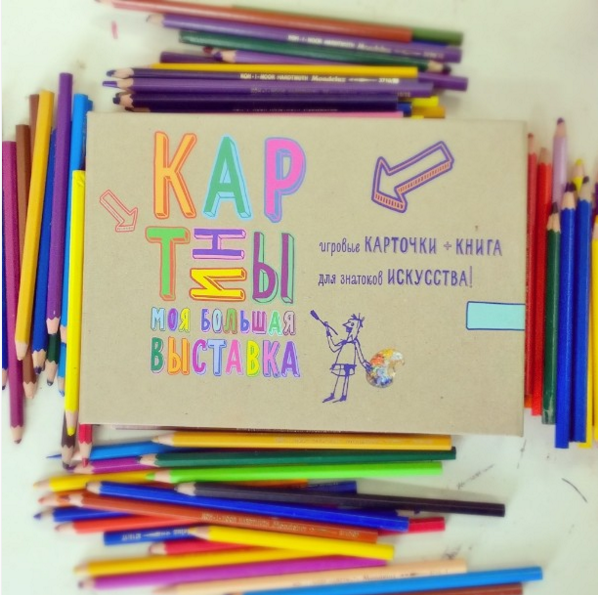 KOH-I-NOOR HARDTMUTH Mondeluz
КАР
ТИНЫ
МОЯ БОЛЬШАЯ
ВЫСТАВКА
игровые КАРТОЧКИ + КНИГА
для знатоков ИСКУССТВА!